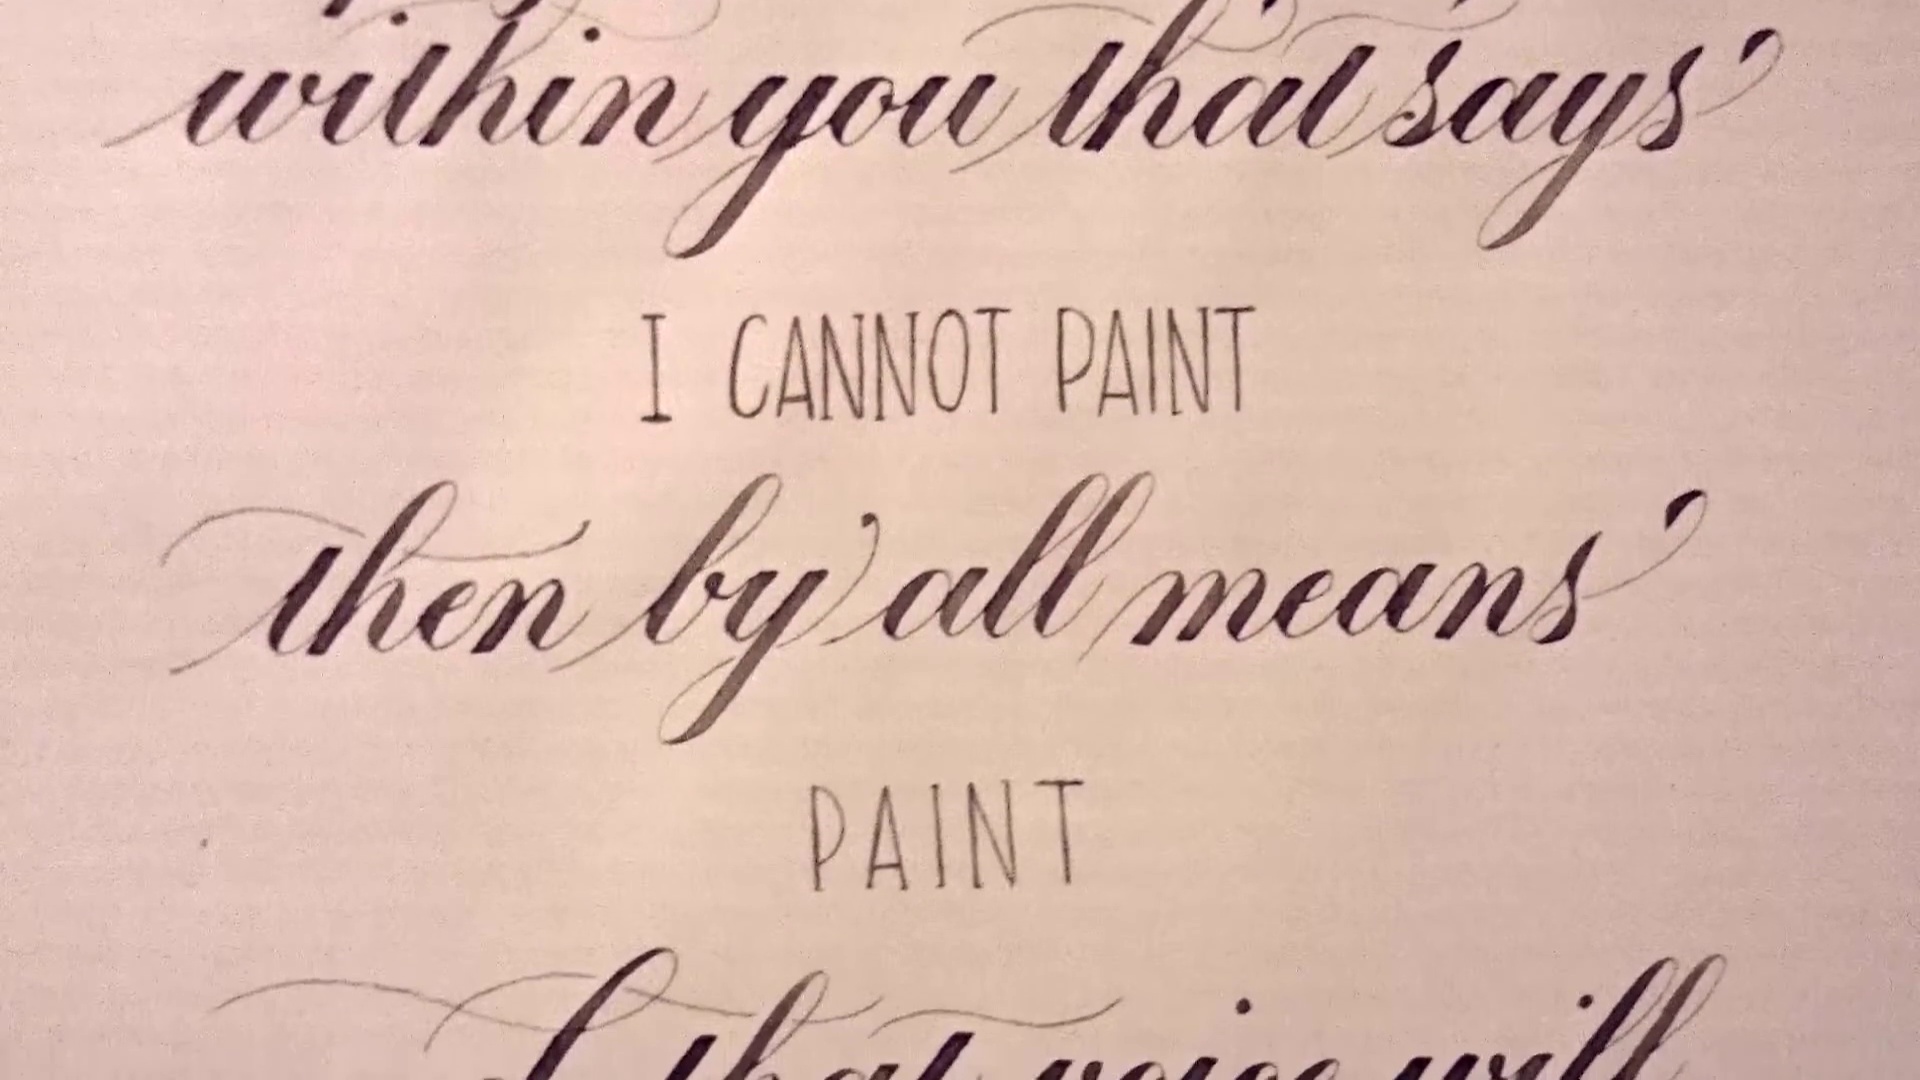 within you that says
I CANNOT PAINT
then by all means
PAINT
& that voice will